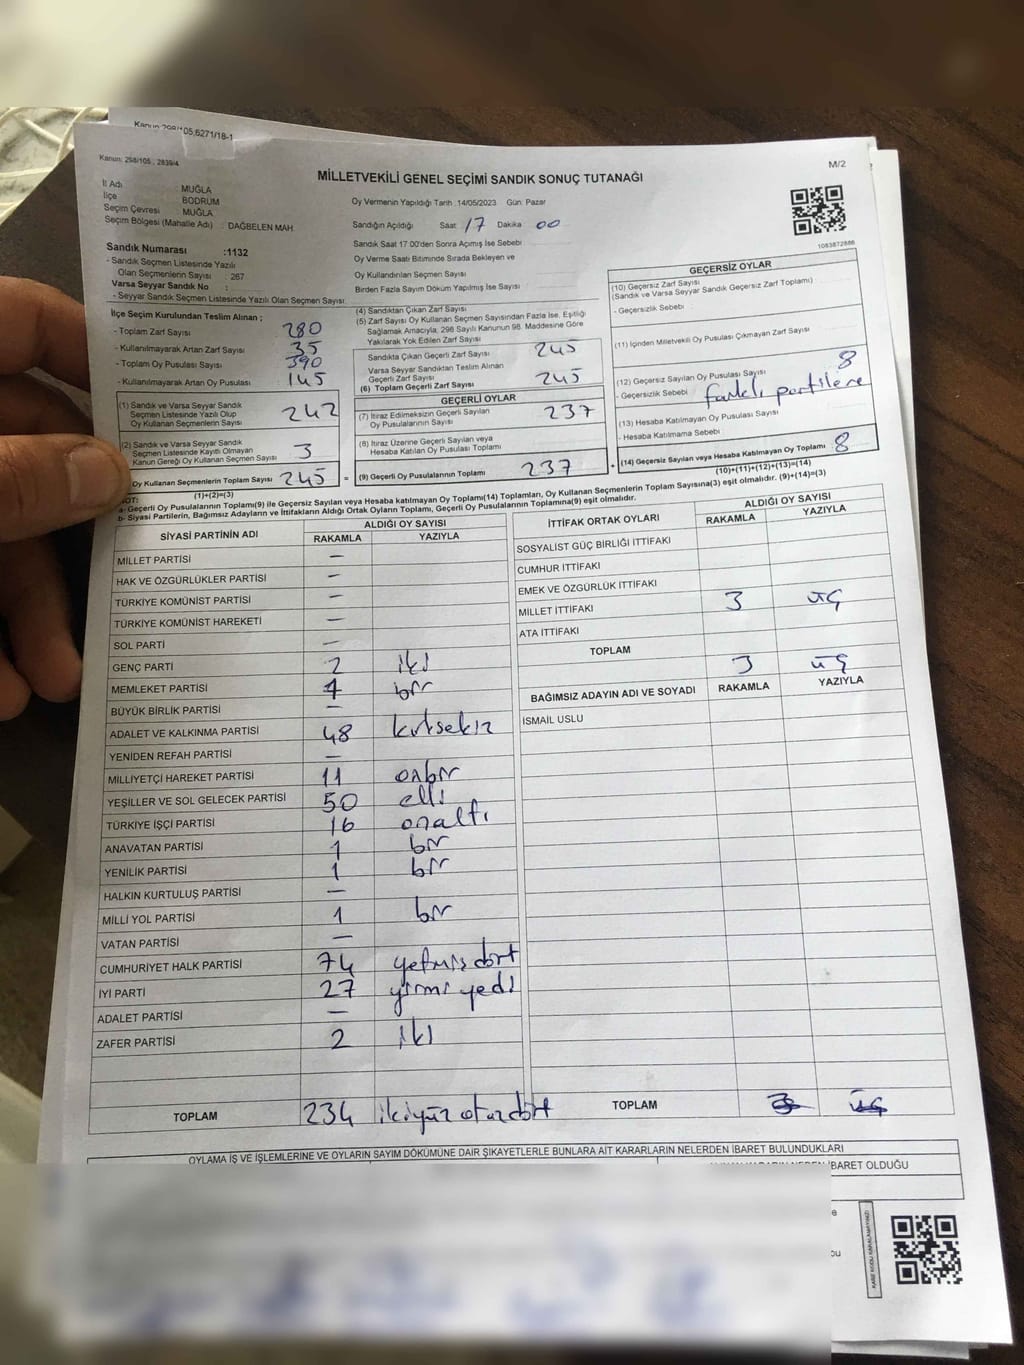 Kanun 298/105,6271/18-1
Kanun: 298/105 , 2839/4
M/2
MİLLETVEKİLİ GENEL SEÇİMİ SANDIK SONUÇ TUTANAĞI
İl Adı : MUĞLA
İlçe BODRUM
Seçim Çevresi MUĞLA
Seçim Bölgesi (Mahalle Adı) : DAĞBELEN MAH
Oy Vermenin Yapıldığı Tarih .14/05/2023 Gün. Pazar
Sandığın Açıldığı Saat 17 Dakika 00
1083872886
Sandık Numarası :1132
- Sandık Seçmen Listesinde Yazılı
Olan Seçmenlerin Sayısı : 267
Varsa Seyyar Sandık No :
- Seyyar Sandık Seçmen Listesinde Yazılı Olan Seçmen Sayısı
Sandık Saat 17 00'den Sonra Açımış İse Sebebi
Oy Verme Saati Bitiminde Sırada Bekleyen ve
Oy Kullandırılan Seçmen Sayısı
Birden Fazla Sayım Döküm Yapılmış İse Sayısı
İlçe Seçim Kurulundan Teslim Alınan ;
- Toplam Zarf Sayısı 280
- Kullanılmayarak Artan Zarf Sayısı 35
- Toplam Oy Pusulası Sayısı 390
- Kullanılmayarak Artan Oy Pusulası 145
(1) Sandık ve Varsa Seyyar Sandık
Seçmen Listesinde Yazılı Olup
Oy Kullanan Seçmenlerin Sayısı 242
(2) Sandık ve Varsa Seyyar Sandık
Seçmen Listesinde Kayıtlı Olmayan
Kanun Gereği Oy Kullanan Seçmen Sayısı 3
Oy Kullanan Seçmenlerin Toplam Sayısı 245
(1)+(2)=(3)
(4) Sandıktan Çıkan Zarf Sayısı
(5) Zarf Sayısı Oy Kullanan Seçmen Sayısından Fazla İse, Eşitliği
Sağlamak Amacıyla, 298 Sayılı Kanunun 98. Maddesine Göre
Yakılarak Yok Edilen Zarf Sayısı
Sandıkta Çıkan Geçerli Zarf Sayısı 245
Varsa Seyyar Sandıktan Teslim Alınan
Geçerli Zarf Sayısı 245
(6) Toplam Geçerli Zarf Sayısı
GEÇERLİ OYLAR
(7) İtiraz Edimeksizin Geçerli Sayılan
Oy Pusulalarının Sayısı 237
(8) İtiraz Üzerine Geçerli Sayılan veya
Hesaba Katılan Oy Pusulası Toplamı
= (9) Geçerli Oy Pusulalarının Toplamı 237
GEÇERSİZ OYLAR
(10) Geçersiz Zarf Sayısı
(Sandık ve Varsa Seyyar Sandık Geçersiz Zarf Toplamı)
- Geçersizlik Sebebi
(11) İçinden Milletvekili Oy Pusulası Çıkmayan Zarf Sayısı
(12) Geçersiz Sayılan Oy Pusulası Sayısı 8
- Geçersizlik Sebebi farklı partilere
(13) Hesaba Katılmayan Oy Pusulası Sayısı
- Hesaba Katılmama Sebebi
+ (14) Geçersiz Sayılan veya Hesaba Katılmayan Oy Toplamı 8
(10)+(11)+(12)+(13)=(14)
NOT:
a- Geçerli Oy Pusulalarının Toplamı(9) ile Geçersiz Sayılan veya Hesaba katılmayan Oy Toplamı(14) Toplamları, Oy Kullanan Seçmenlerin Toplam Sayısına(3) eşit olmalıdır. (9)+(14)=(3)
b- Siyasi Partilerin, Bağımsız Adayların ve İttifakların Aldığı Ortak Oyların Toplamı, Geçerli Oy Pusulalarının Toplamına(9) eşit olmalıdır.
SİYASİ PARTİNİN ADI ALDIĞI OY SAYISI
RAKAMLA YAZIYLA
MİLLET PARTİSİ —
HAK VE ÖZGÜRLÜKLER PARTİSİ —
TÜRKİYE KOMÜNİST PARTİSİ —
TÜRKİYE KOMÜNİST HAREKETİ —
SOL PARTİ —
GENÇ PARTİ 2 iki
MEMLEKET PARTİSİ 1 bir
BÜYÜK BİRLİK PARTİSİ —
ADALET VE KALKINMA PARTİSİ 48 kırksekiz
YENİDEN REFAH PARTİSİ —
MİLLİYETÇİ HAREKET PARTİSİ 11 onbir
YEŞİLLER VE SOL GELECEK PARTİSİ 50 elli
TÜRKİYE İŞÇİ PARTİSİ 16 onaltı
ANAVATAN PARTİSİ 1 bir
YENİLİK PARTİSİ 1 bir
HALKIN KURTULUŞ PARTİSİ —
MİLLİ YOL PARTİSİ 1 bir
VATAN PARTİSİ —
CUMHURİYET HALK PARTİSİ 74 yetmişdört
İYİ PARTİ 27 yirmiyedi
ADALET PARTİSİ —
ZAFER PARTİSİ 2 iki
TOPLAM 234 ikiyüz otuzdört
İTTİFAK ORTAK OYLARI ALDIĞI OY SAYISI
RAKAMLA YAZIYLA
SOSYALIST GÜÇ BİRLİĞİ İTTİFAKI
CUMHUR İTTİFAKI
EMEK VE ÖZGÜRLÜK İTTİFAKI
MİLLET İTTİFAKI 3 üç
ATA İTTİFAKI
TOPLAM 3 üç
BAĞIMSIZ ADAYIN ADI VE SOYADI RAKAMLA YAZIYLA
İSMAİL USLU
TOPLAM 3 üç
OYLAMA İŞ VE İŞLEMLERİNE VE OYLARIN SAYIM DÖKÜMÜNE DAİR ŞİKAYETLERLE BUNLARA AİT KARARLARIN NELERDEN İBARET BULUNDUKLARI
İBARET OLDUĞU